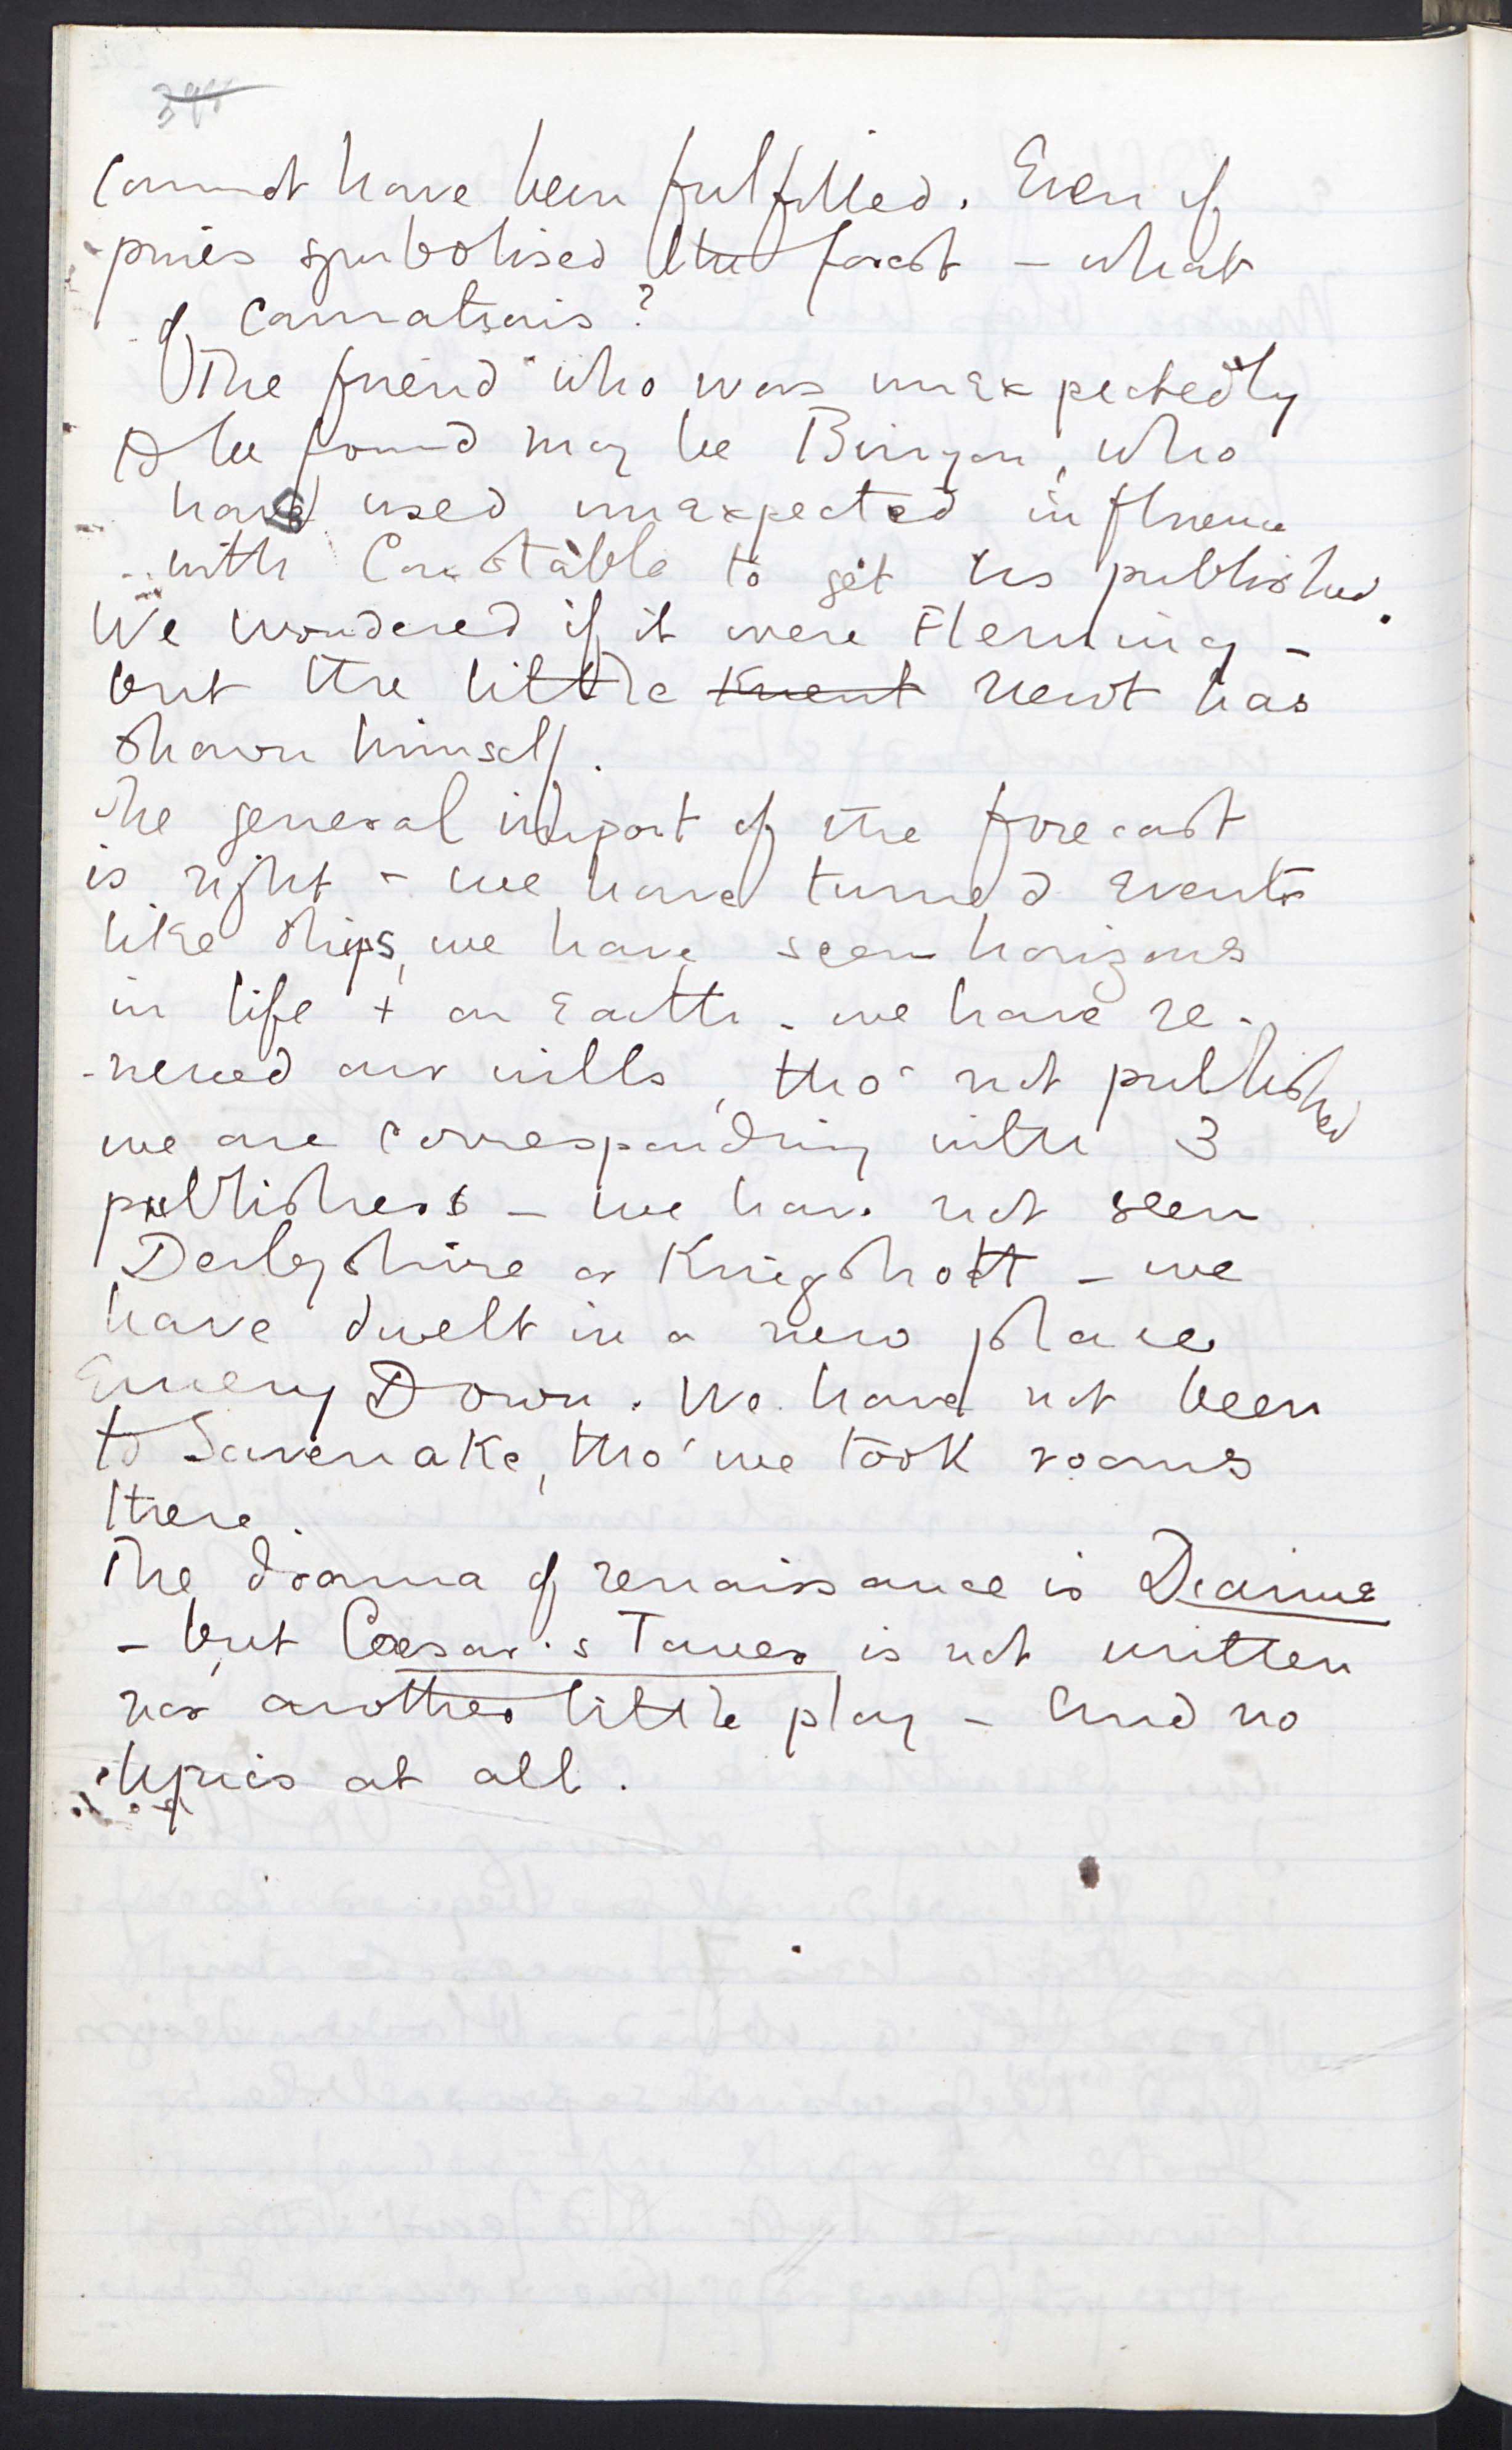 cannot have been fulfilled. Even if
pines symbolised the forest – what
of Carnations?
The friend who was unexpectedly
to be found may be Binyon, who
has used unexpected influence
with Constable to get us published.
We wondered if it were Fleming –
but the little Knewt newt has
shown himself.
The general import of the forecast
is right – we have turned events
like ships, we have seen horizons
in life + on Earth – we have re-
-newed our wills, tho' not published
we are corresponding with 3
publishers – we have not seen
Derbyshire or Kingshott – we
have dwelt in a new place
Emery Down. We have not been
to Savenake, tho' we took rooms
there.
The drama of renaissance is Dianne
– but Caesar's Tower is not written
nor another little play – And no
lyrics at all.